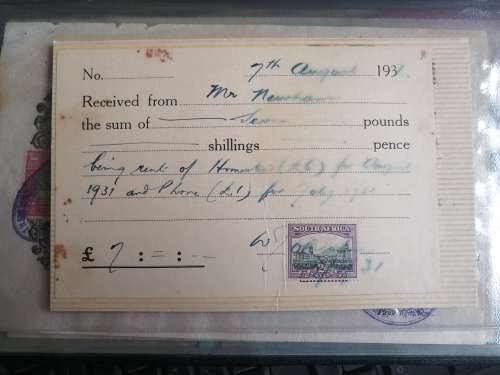 No. 7th August 1931.
Received from Mr
the sum of Seven pounds
shillings pence
being rent of (£6) for August
1931 and Phone (£1) for July 1931
£ 7 : = : --
SOUTH AFRICA
31